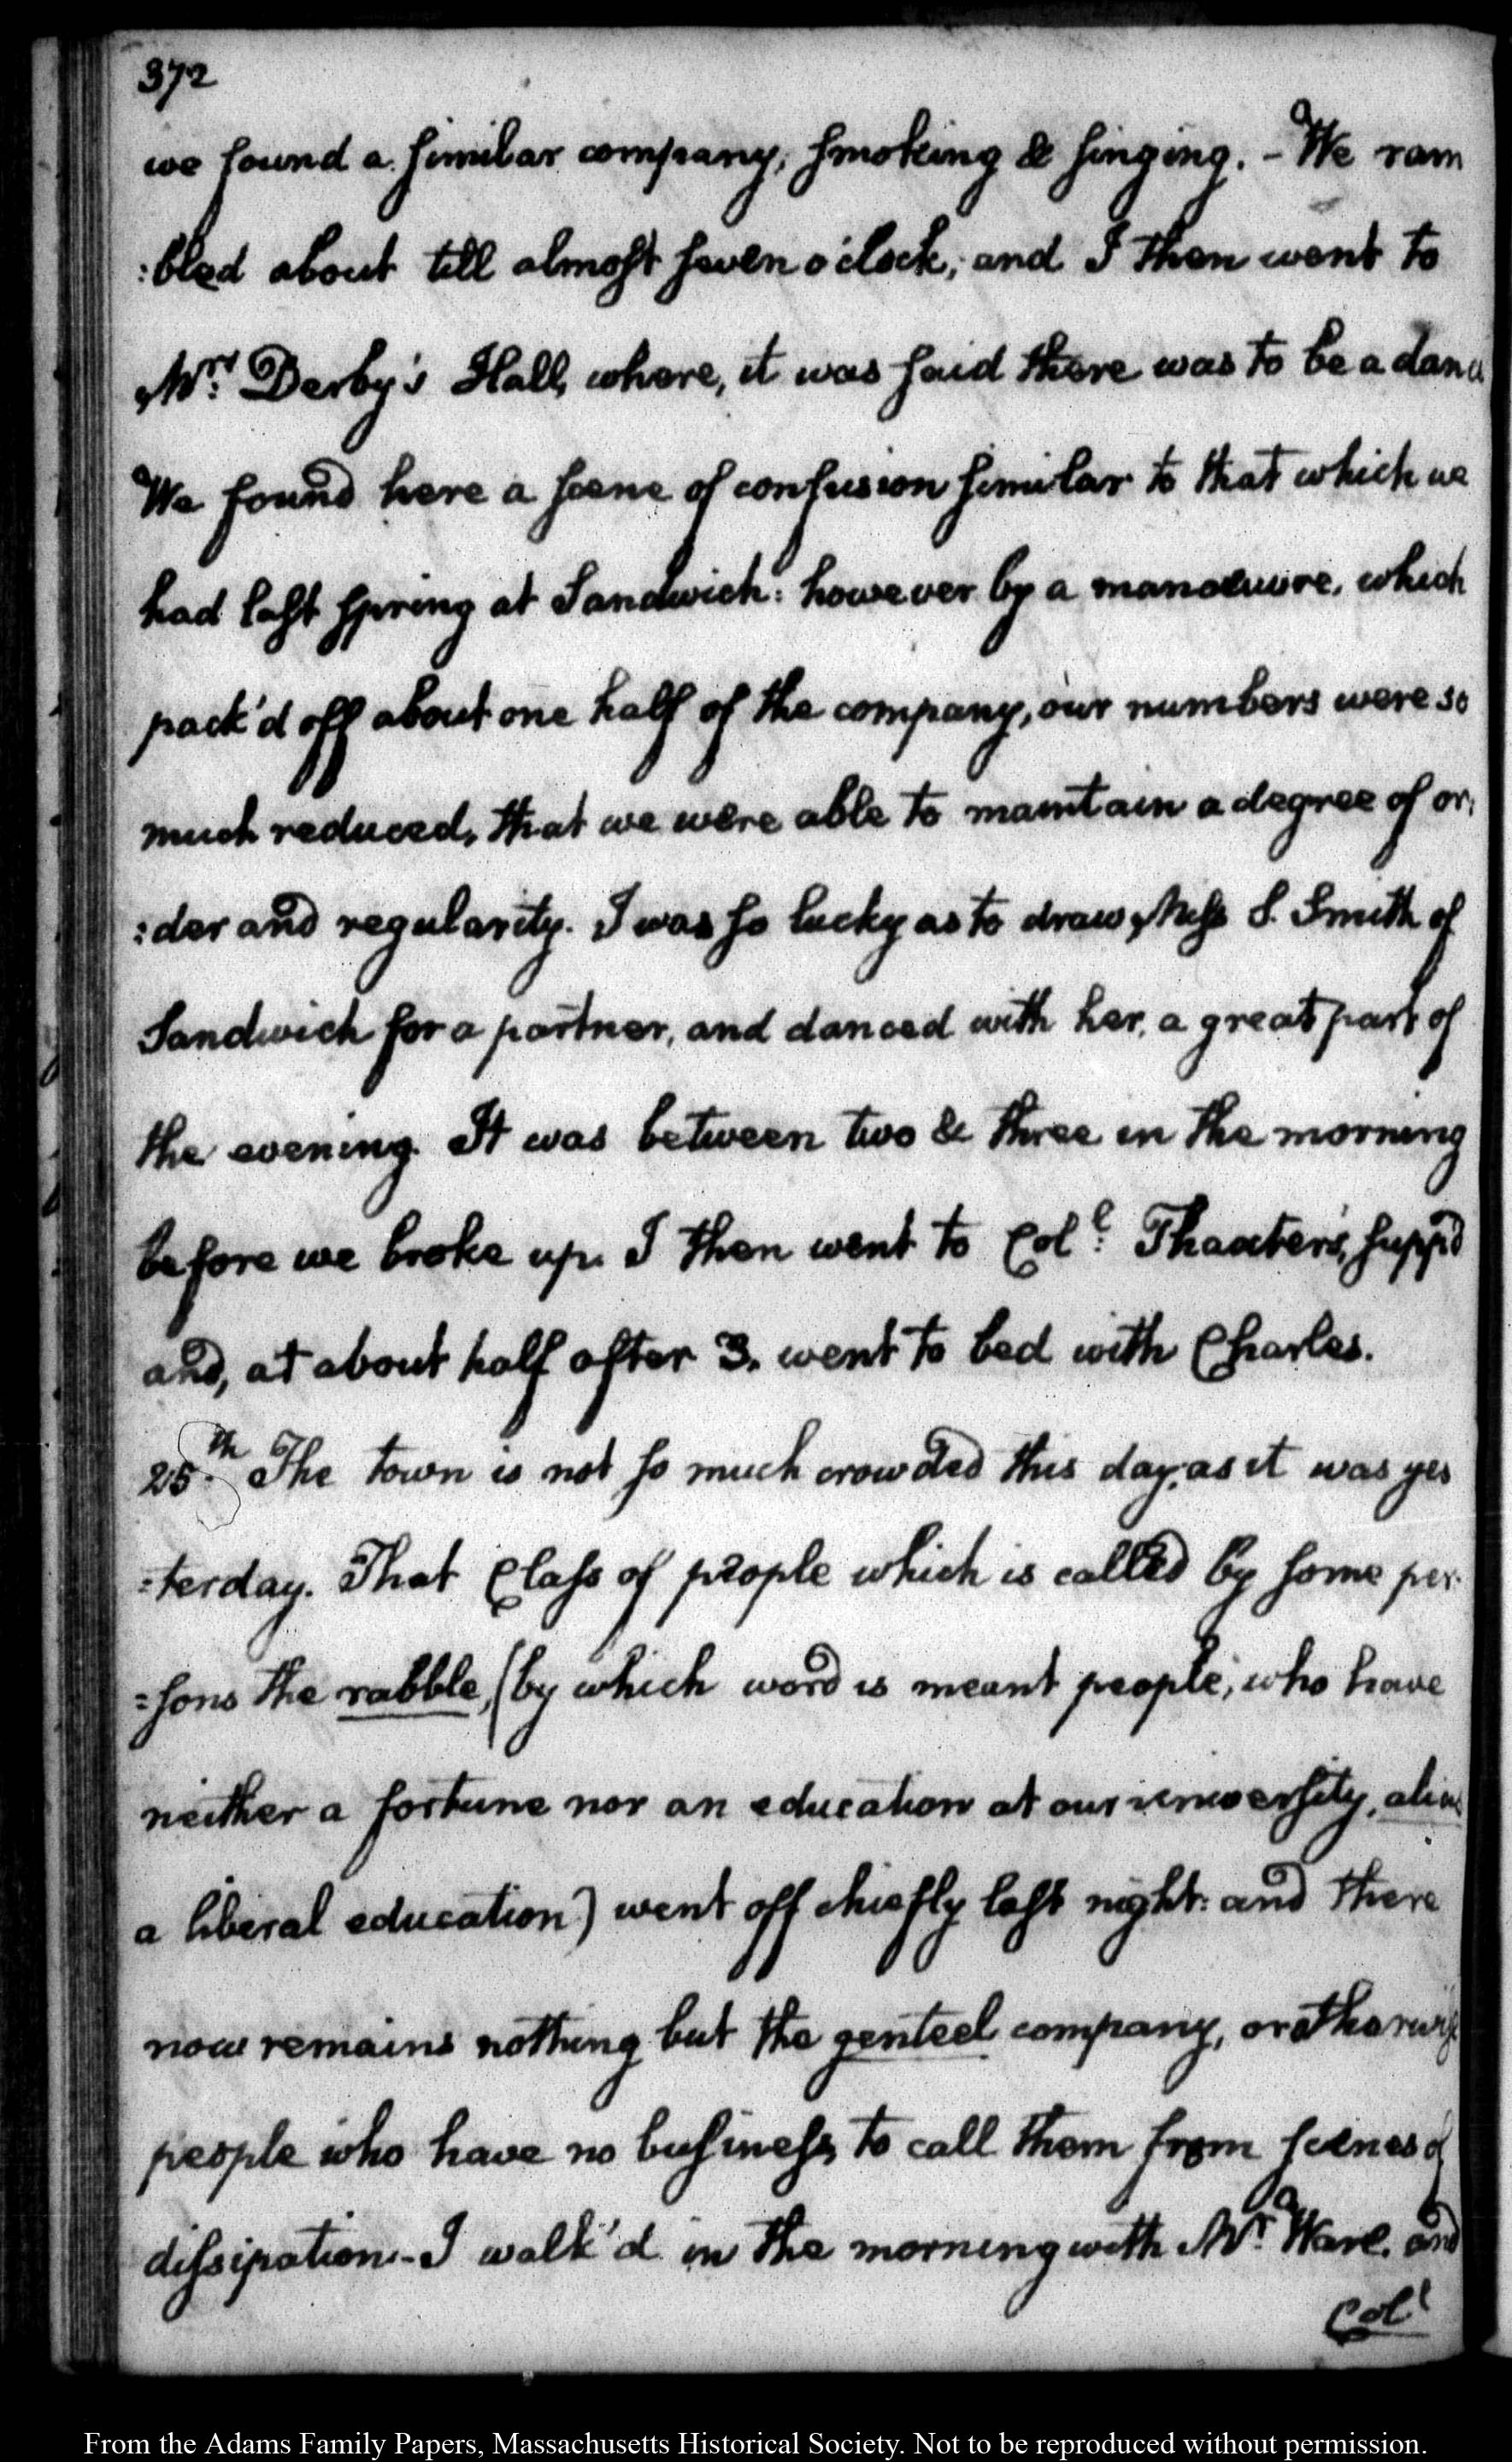 372
we found a similar company, smoking & singing. - We ram
:bled about till almost seven o'clock, and I then went to
Mrs: Derby's Hall, where, it was said there was to be a danc
We found here a scene of confusion similar to that which we
had last spring at Sandwich: however by a manoeuvre, which
pack'd off about one half of the company, our numbers were so
much reduced, that we were able to maintain a degree of or:
:der and regularity. I was so lucky as to draw Miss S. Smith of
Sandwich for a partner, and danced with her, a great part of
the evening. It was between two & three in the morning
before we broke up. I then went to Coll: Thaxter's, supp'd
and, at about half after 3. went to bed with Charles.
25th. The town is not so much crowded this day, as it was yes
:terday. That Class of people which is called by some per:
:sons the rabble, (by which word is meant people, who have
neither a fortune nor an education at our university, alias
a liberal education) went off chiefly last night: and there
now remains nothing but the genteel company, or otherwise
people who have no business, to call them from scenes of
dissipation. - I walk'd in the morning with Mr. Ware. and
Coll
From the Adams Family Papers, Massachusetts Historical Society. Not to be reproduced without permission.